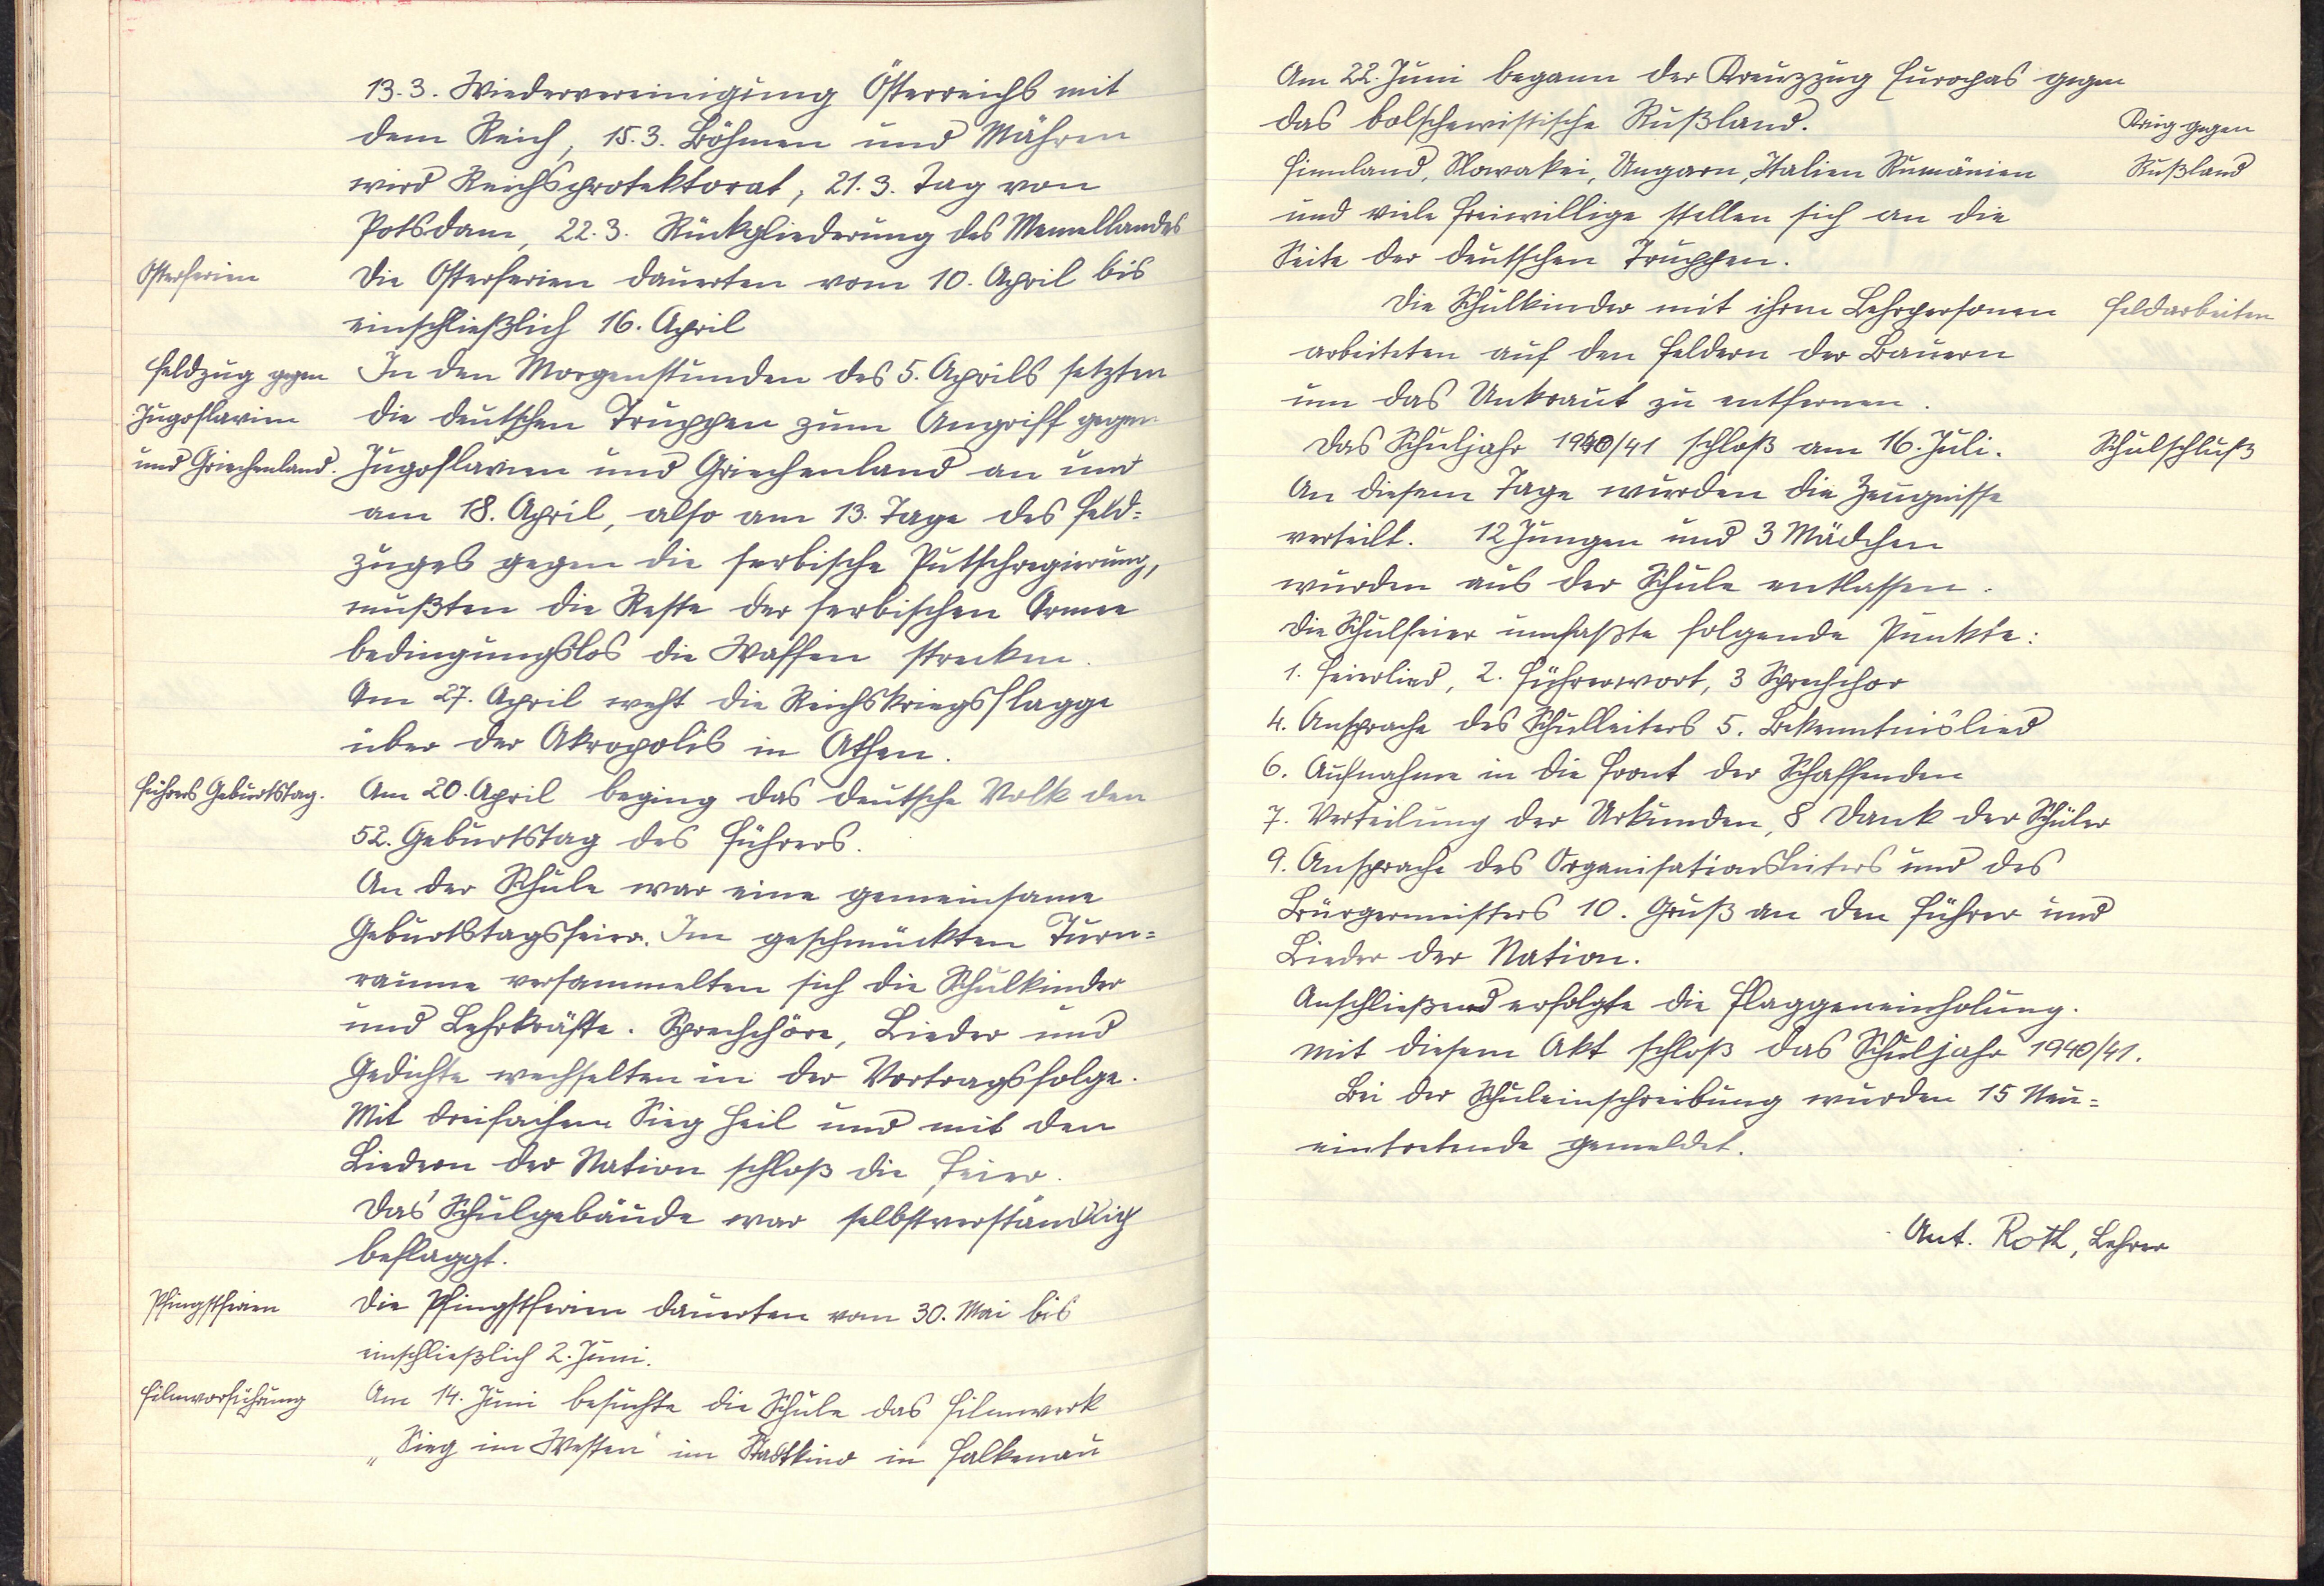 13.3. Wiedervereinigung Österreichs mit
dem Reich, 15.3. Böhmen und Mähren
wird Reichsprotektorat, 21.3. Tag von
Potsdam, 22.3. Rückgliederung des Memellandes
Osterferien
Die Osterferien dauerten vom 10. April bis
einschließlich 16. April
Feldzug gegen
In den Morgenstunden des 5. Aprils setzten
Jugoslavien
die deutschen Truppen zum Angriff gegen
und Griechenland.
Jugoslavien und Griechenland an und
am 18. April, also am 13. Tage des Feld=
zuges gegen die serbische Putschregierung,
mußten die Reste der serbischen Armee
bedingungslos die Waffen strecken.
Am 27. April weht die Reichskriegsflagge
über der Akropolis in Athen.
Führers Geburtstag.
Am 20. April beging das deutsche Volk den
52. Geburtstag des Führers.
An der Schule war eine gemeinsame
Geburtstagsfeier. Im geschmückten Turn=
raume versammelten sich die Schulkinder
und Lehrkräfte. Sprechchöre, Lieder und
Gedichte wechselten in der Vortragsfolge.
Mit dreifachem Sieg Heil und mit den
Liedern der Nation schloß die Feier.
Das Schulgebäude war selbstverständlich
beflaggt.
Pfingstferien
Die Pfingstferien dauerten vom 30. Mai bis
einschließlich 2. Juni.
Filmvorführung
Am 14. Juni besuchte die Schule das Filmwerk
„Sieg im Westen" im Stadtkino in Falkenau
Am 22. Juni begann der Kreuzzug Europas gegen
das bolschewistische Rußland.
Krieg gegen
Finnland, Slowakei, Ungarn, Italien Rumänien
Rußland
und viele Freiwillige stellen sich an die
Seite der deutschen Truppen.
Die Schulkinder mit ihren Lehrpersonen
Feldarbeiten
arbeiteten auf den Feldern der Bauern
um das Unkraut zu entfernen.
Das Schuljahr 1940/41 schloß am 16. Juli.
Schulschluß
An diesem Tage wurden die Zeugnisse
verteilt. 12 Jungen und 3 Mädchen
wurden aus der Schule entlassen.
Die Schulfeier umfaßte folgende Punkte:
1. Feierlied, 2. Führerwort, 3 Sprechchor
4. Ansprache des Schulleiters 5. Bekenntnislied
6. Aufnahme in die Front der Schaffenden
7. Verteilung der Urkunden, 8 Dank der Schüler
9. Ansprache des Organisationsleiters und des
Bürgermeisters 10. Gruß an den Führer und
Lieder der Nation.
Anschließend erfolgte die Flaggeneinholung.
Mit diesem Akt schloß das Schuljahr 1940/41.
Bei der Schuleinschreibung wurden 15 Neu=
eintretende gemeldet.
Ant. Roth, Lehrer